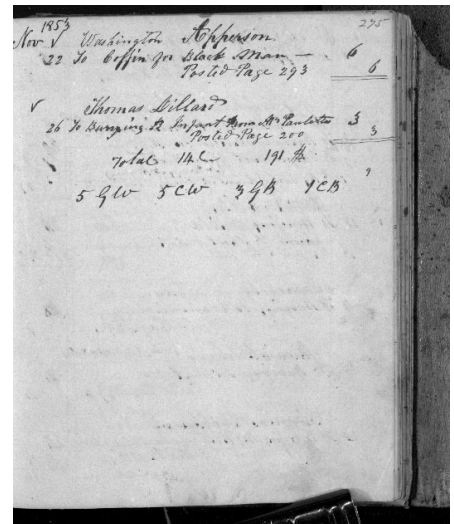 1853 295
Nov √ Washington Apperson
22 To Coffin for Black Man — 6
Posted Page 293 6
√ Thomas Dillard
26 To Burying Infant from 3
Posted Page 200 3
Total 14 C 191 $
5 GW 5 CW 3 GB 1 CB